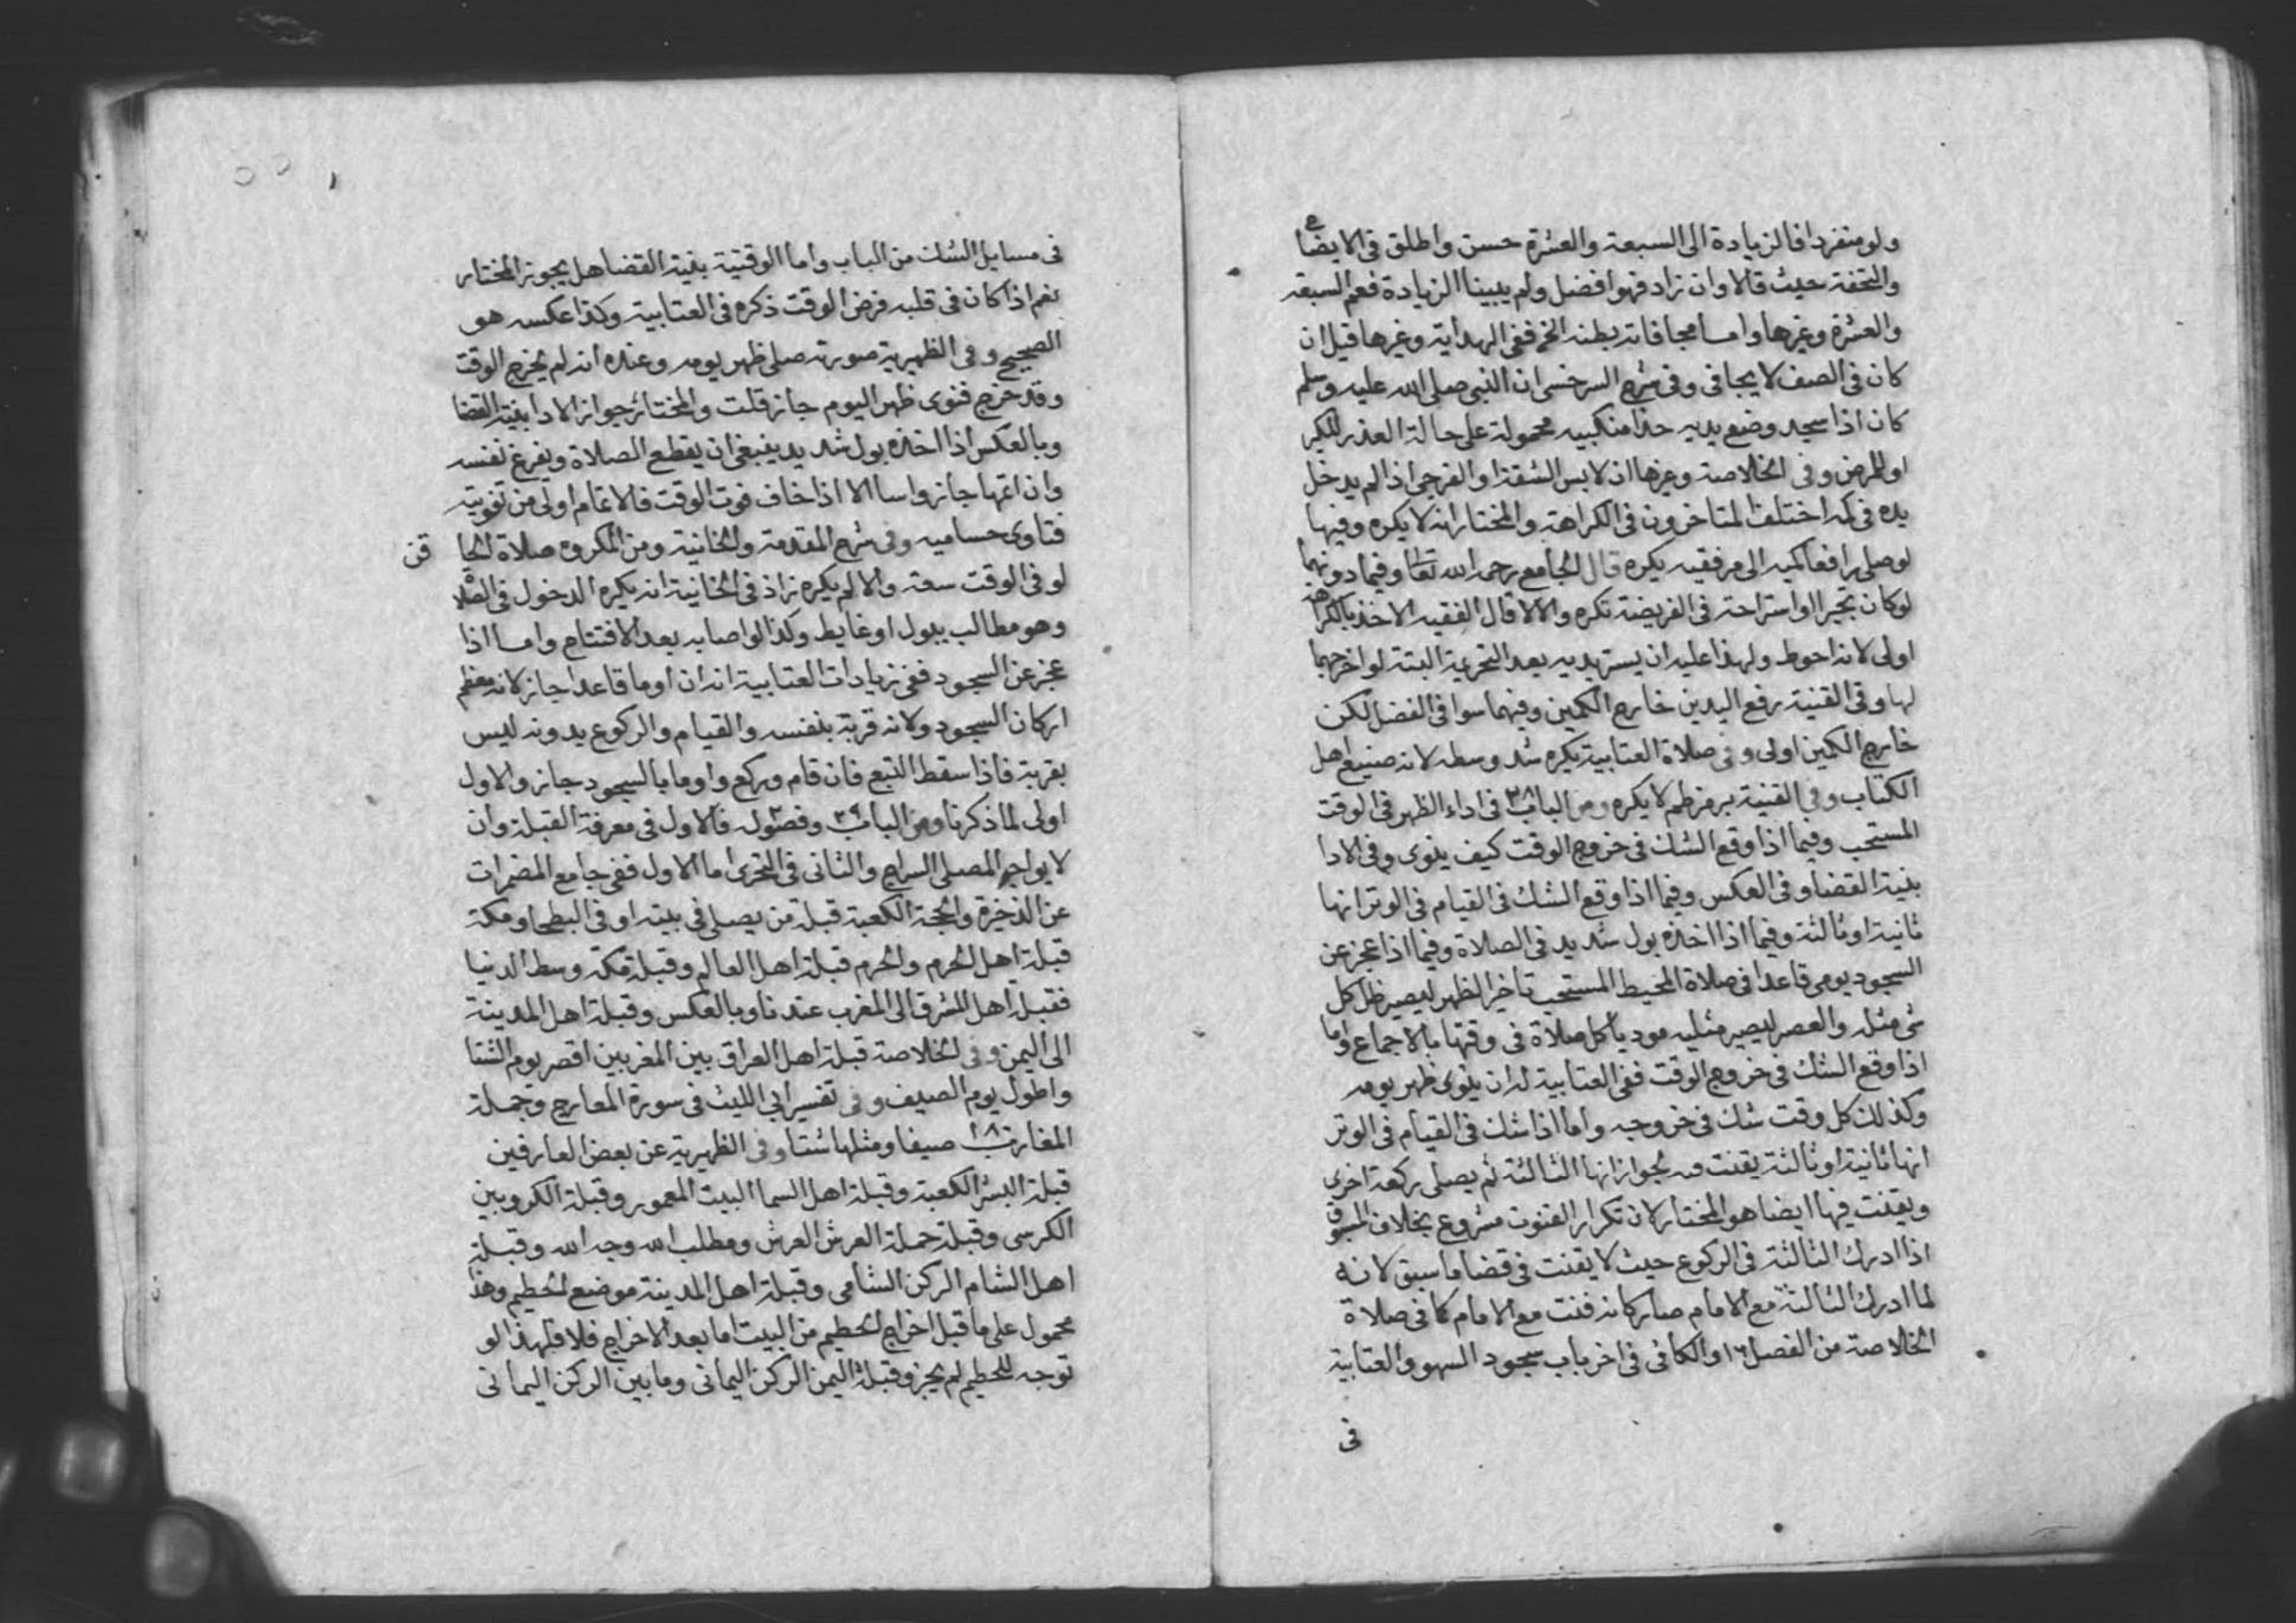 ولو منفردا فالزيادة الى السبعة والعشرة حسن واطلق فى الايضاح
والتحفة حيث قالا وان زاد فهو افضل ولم يبينا الزيادة فعم السبعة
والعشرة وغيرها واما مجافاته بطنه الخ ففى الهداية وغيرها قيل ان
كان فى الصف لا يجافى وفى شرح السرخسى ان النبى صلى الله عليه وسلم
كان اذا سجد وضع يديه حذا منكبيه محمولة على حالة العذر للكبر
او للمرض وفى الخلاصة وغيرها ان لابس الشقة او الفرجى اذا لم يدخل
يده فى كمه اختلف المتاخرون فى الكراهة والمختار انه لا يكره وفيها
لو صلى رافعا كميه الى مرفقيه يكره قال الجامع رحمه الله تعالى وفيما دونهما
لو كان تجبرا او استراحة فى الفريضة تكره والا لا قال الفقيه الاخذ بالكراهة
اولى لانه احوط ولهذا عليه ان يستر يديه بعد التحريمة البتة لو اخرجهما
لها وفى القنية رفع اليدين خارج الكمين وفيهما سوا فى الفضل لكن
خارج الكمين اولى وفى صلاة العتابية يكره شد وسطه لانه صنيع اهل
الكتاب وفى القنية برمز ظم لا يكره ومن الباب ٣٨ فى اداء الظهر فى الوقت
المستحب وفيما اذا وقع الشك فى خروج الوقت كيف ينوى وفى الادا
بنية القضا وفى العكس وفيما اذا وقع الشك فى القيام فى الوتر انها
ثانية او ثالثة وفيما اذا اخذه بول شديد فى الصلاة وفيما اذا عجز عن
السجود يومى قاعدا فى صلاة المحيط المستحب تاخير الظهر ليصير ظل كل
شى مثله والعصر ليصير مثليه موديا كل صلاة فى وقتها بالاجماع واما
اذا وقع الشك فى خروج الوقت ففى العتابية له ان ينوى ظهر يومه
وكذلك كل وقت شك فى خروجه واما اذا شك فى القيام فى الوتر
انها ثانية او ثالثة يقنت فيه لجواز انها الثالثة ثم يصلى ركعة اخرى
ويقنت فيها ايضا هو المختار لان تكرار القنوت مشروع بخلاف المسبوق
اذا ادرك الثالثة فى الركوع حيث لا يقنت فى قضا ما سبق لانه
لما ادرك الثالثة مع الامام صار كانه قنت مع الامام كما فى صلاة
الخلاصة من الفصل ١٦ والكافى فى اخر باب سجود السهو والعتابية
فى
فى مسايل الشك من الباب واما الوقتية بنية القضا هل يجوز المختار
نعم اذا كان فى قلبه فرض الوقت ذكره فى العتابية وكذا عكسه هو
الصحيح وفى الظهيرية صورته صلى ظهر يومه وعنده انه لم يخرج الوقت
وقد خرج فنوى ظهر اليوم جاز قلت والمختار جواز الادا بنية القضا
وبالعكس اذا اخذه بول شديد ينبغى ان يقطع الصلاة ويفرغ نفسه
وان اتمها جاز واسا الا اذا خاف فوت الوقت فالاتمام اولى من تفويته
فتاوى حساميه وفى شرح المقدمة والخانية ومن المكروه صلاة الحا قن
لو فى الوقت سعة والا لم يكره زاد فى الخانية انه يكره الدخول فى الصلاة
وهو مطالب ببول او غايط وكذا لو اصابه بعد الافتتاح واما اذا
عجز عن السجود ففى زيادات العتابية انه ان اوما قاعدا جاز لانه معظم
اركان السجود ولانه قربة بنفسه والقيام والركوع بدونه ليس
بقربة فاذا سقط التبع فان قام وركع واوما بالسجود جاز والاول
اولى لما ذكرنا ومن الباب ٣٩ وفصوله فالاول فى معرفة القبلة وان
لا يواجه المصلى السراج والثانى فى التحرى اما الاول ففى جامع المضمرات
عن الذخيرة والحجة الكعبة قبلة من يصلى فى بيته او فى البطحا ومكة
قبلة اهل الحرم والحرم قبلة اهل العالم وقبلة مكة وسط الدنيا
فقبلة اهل المشرق الى المغرب عندنا وبالعكس وقبلة اهل المدينة
الى اليمن وفى الخلاصة قبلة اهل العراق بين المغربين اقصر يوم الشتا
واطول يوم الصيف وفى تفسير ابى الليث فى سورة المعارج وجملة
المغارب ١٨٠ صيفا ومثلها شتا وفى الظهيرية عن بعض العارفين
قبلة البشر الكعبة وقبلة اهل السما البيت المعمور وقبلة الكروبين
الكرسى وقبلة حملة العرش العرش ومطلب الله وجه الله وقبلة
اهل الشام الركن الشامى وقبلة اهل المدينة موضع الحطيم وهذا
محمول على ما قبل اخراج الحطيم من البيت اما بعد الاخراج فلا فلهذا لو
توجه للحطيم لم يجز وقبلة اليمن الركن اليمانى وما بين الركن اليمانى